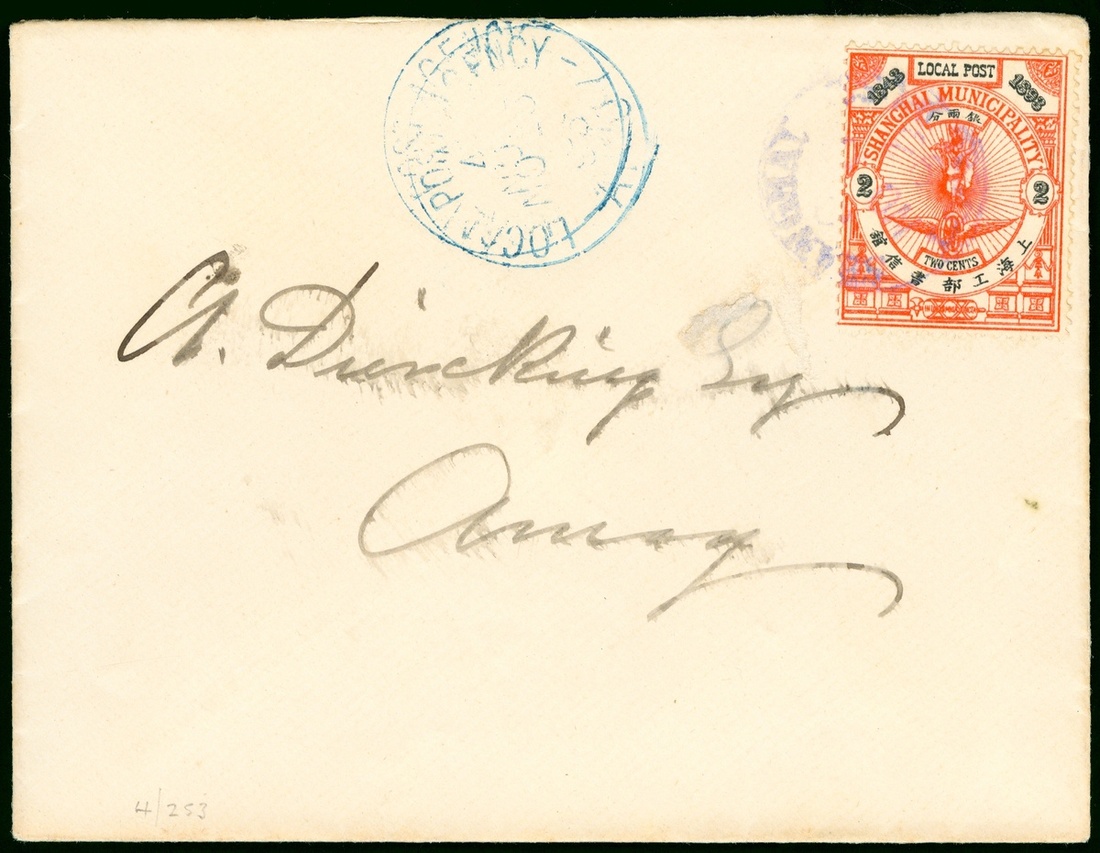 LOCAL POST
1843 1893
SHANGHAI MUNICIPALITY
銀兩分
2 2
TWO CENTS
上海工部書信館
LOCAL POST AGENCY
A. Diercking Esq
Amoy
4/253